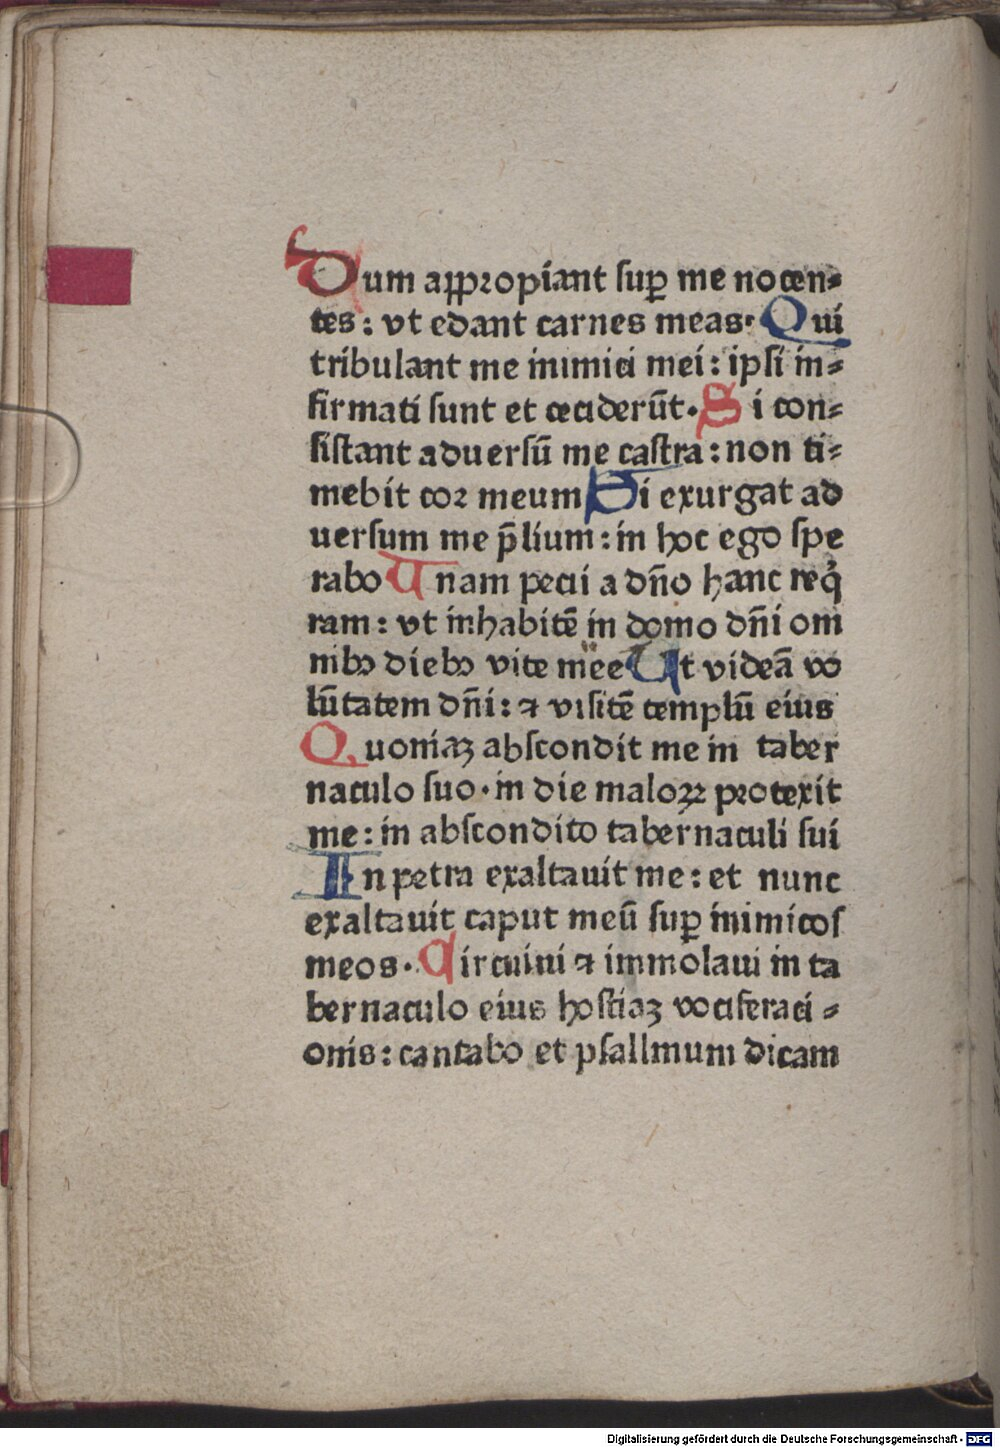 Dum appꝛopiant ſuꝑ me nocen⸗
tes : vt edant carnes meas· Qui
tribulant me inimici mei : ipſi in⸗
firmati ſunt et ceciderūt· Si con⸗
ſiſtant aduerſū me caſtra : non ti⸗
mebit coꝛ meum Si exurgat ad
uerſum me p̄lium : in hoc ego ſpe
rabo Unam pecii a dn̄o hanc req̇
ram : vt inhabitē in domo dn̄i om
nibꝫ diebꝫ vite mee Ut videā vo
lūtatem dn̄i : ⁊ viſitē templū eius
Quoniaꝫ abſcondit me in taber
naculo ſuo· in die maloꝝ pꝛotexit
me : in abſcondito tabernaculi ſui
In petra exaltauit me : et nunc
exaltauit caput meū ſuꝑ inimicoſ
meos· Circuiui ⁊ immolaui in ta
bernaculo eius hoſtiaꝫ vociferaci⸗
onis : cantabo et pſallmum dicam
Digitalisierung gefördert durch die Deutsche Forschungsgemeinschaft - DFG